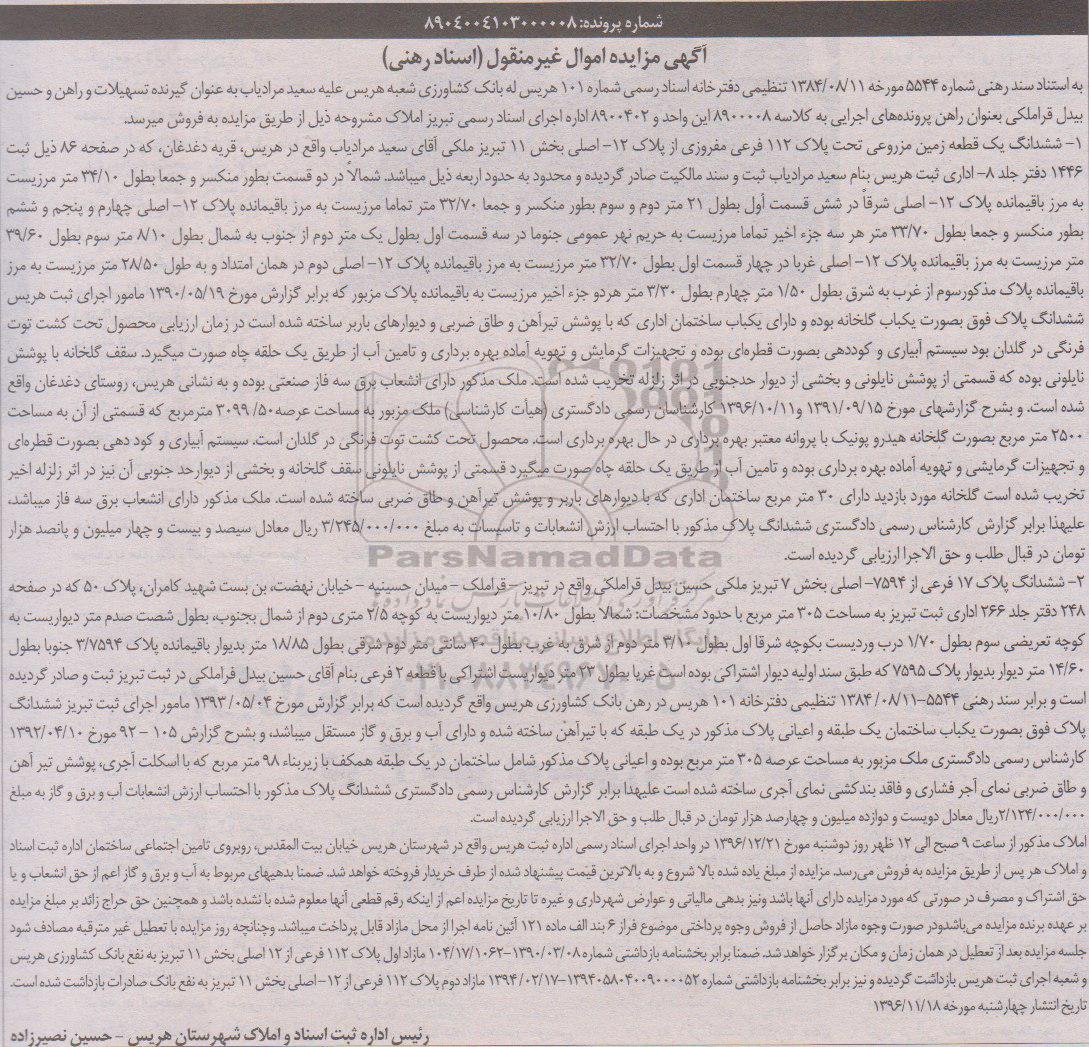 شماره پرونده: ۸۹۰۴۰۰۴۱۰۳۰۰۰۰۰۸
آگهی مزایده اموال غیرمنقول (اسناد رهنی)
به استناد سند رهنی شماره ۵۵۴۴ مورخه ۱۳۸۴/۰۸/۱۱ تنظیمی دفترخانه اسناد رسمی شماره ۱۰۱ هریس له بانک کشاورزی شعبه هریس علیه سعید مرادیاب به عنوان گیرنده تسهیلات و راهن و حسین
بیدل قراملکی بعنوان راهن پرونده‌های اجرایی به کلاسه ۸۹۰۰۰۰۸ این واحد و ۸۹۰۰۴۰۲ اداره اجرای اسناد رسمی تبریز املاک مشروحه ذیل از طریق مزایده به فروش میرسد.
۱- ششدانگ یک قطعه زمین مزروعی تحت پلاک ۱۱۲ فرعی مفروزی از پلاک ۱۲- اصلی بخش ۱۱ تبریز ملکی آقای سعید مرادیاب واقع در هریس، قریه دغدغان، که در صفحه ۸۶ ذیل ثبت
۱۴۴۶ دفتر جلد ۸- اداری ثبت هریس بنام سعید مرادیاب ثبت و سند مالکیت صادر گردیده و محدود به حدود اربعه ذیل میباشد. شمالاً در دو قسمت بطور منکسر و جمعا بطول ۳۴/۱۰ متر مرزیست
به مرز باقیمانده پلاک ۱۲- اصلی شرقاً در شش قسمت أول بطول ۲۱ متر دوم و سوم بطور منکسر و جمعا ۳۲/۷۰ متر تماما مرزیست به مرز باقیمانده پلاک ۱۲- اصلی چهارم و پنجم و ششم
بطور منکسر و جمعا بطول ۳۳/۷۰ متر هر سه جزء اخیر تماما مرزیست به حریم نهر عمومی جنوما در سه قسمت اول بطول یک متر دوم از جنوب به شمال بطول ۸/۱۰ متر سوم بطول ۳۹/۶۰
متر مرزیست به مرز باقیمانده پلاک ۱۲- اصلی غربا در چهار قسمت اول بطول ۳۲/۷۰ متر مرزیست به مرز باقیمانده پلاک ۱۲- اصلی دوم در همان امتداد و به طول ۲۸/۵۰ متر مرزیست به مرز
باقیمانده پلاک مذکورسوم از غرب به شرق بطول ۱/۵۰ متر چهارم بطول ۳/۳۰ متر هردو جزء اخیر مرزیست به باقیمانده پلاک مزبور که برابر گزارش مورخ ۱۳۹۰/۰۵/۱۹ مامور اجرای ثبت هریس
ششدانگ پلاک فوق بصورت یکباب گلخانه بوده و دارای یکباب ساختمان اداری که با پوشش تیرآهن و طاق ضربی و دیوارهای باربر ساخته شده است در زمان ارزیابی محصول تحت کشت توت
فرنگی در گلدان بود سیستم آبیاری و کوددهی بصورت قطره‌ای بوده و تجهیزات گرمایش و تهویه آماده بهره برداری و تامین آب از طریق یک حلقه چاه صورت میگیرد. سقف گلخانه با پوشش
نایلونی بوده که قسمتی از پوشش نایلونی و بخشی از دیوار حدجنوبی در اثر زلزله تخریب شده است. ملک مذکور دارای انشعاب برق سه فاز صنعتی بوده و به نشانی هریس، روستای دغدغان واقع
شده است. و بشرح گزارشهای مورخ ۱۳۹۱/۰۹/۱۵ و۱۳۹۶/۱۰/۱۱ کارشناسان رسمی دادگستری (هیأت کارشناسی) ملک مزبور به مساحت عرصه ۳۰۹۹/۵۰ مترمربع که قسمتی از آن به مساحت
۲۵۰۰ متر مربع بصورت گلخانه هیدرو پونیک با پروانه معتبر بهره برداری در حال بهره برداری است. محصول تحت کشت توت فرنگی در گلدان است. سیستم آبیاری و کود دهی بصورت قطره‌ای
و تجهیزات گرمایشی و تهویه آماده بهره برداری بوده و تامین آب از طریق یک حلقه چاه صورت میگیرد قسمتی از پوشش نایلونی سقف گلخانه و بخشی از دیوارحد جنوبی آن نیز در اثر زلزله اخیر
تخریب شده است گلخانه مورد بازدید دارای ۳۰ متر مربع ساختمان اداری که با دیوارهای باربر و پوشش تیرآهن و طاق ضربی ساخته شده است. ملک مذکور دارای انشعاب برق سه فاز میباشد،
علیهذا برابر گزارش کارشناس رسمی دادگستری ششدانگ پلاک مذکور با احتساب ارزش انشعابات و تاسیسات به مبلغ ۳/۲۴۵/۰۰۰/۰۰۰ ریال معادل سیصد و بیست و چهار میلیون و پانصد هزار
تومان در قبال طلب و حق الاجرا ارزیابی گردیده است.
۲- ششدانگ پلاک ۱۷ فرعی از ۷۵۹۴- اصلی بخش ۷ تبریز ملکی حسین بیدل قراملکی واقع در تبریز – قراملک – میدان حسینیه – خیابان نهضت، بن بست شهید کامران، پلاک ۵۰ که در صفحه
۲۴۸ دفتر جلد ۲۶۶ اداری ثبت تبریز به مساحت ۳۰۵ متر مربع با حدود مشخصات: شمالا بطول ۱۰/۸۰ متر دیواریست به کوچه ۲/۵ متری دوم از شمال بجنوب، بطول شصت صدم متر دیواریست به
کوچه تعریضی سوم بطول ۱/۷۰ درب وردیست بکوچه شرقا اول بطول ۳/۱۰ متر دوم از شرق به غرب بطول ۴۰ سانتی متر دوم شرقی بطول ۱۸/۸۵ متر بدیوار باقیمانده پلاک ۳/۷۵۹۴ جنوبا بطول
۱۴/۶۰ متر دیوار بدیوار پلاک ۷۵۹۵ که طبق سند اولیه دیوار اشتراکی بوده است غربا بطول ۲۲ متر دیواریست اشتراکی با قطعه ۲ فرعی بنام آقای حسین بیدل قراملکی در ثبت تبریز ثبت و صادر گردیده
است و برابر سند رهنی ۵۵۴۴-۱۳۸۴/۰۸/۱۱ تنظیمی دفترخانه ۱۰۱ هریس در رهن بانک کشاورزی هریس واقع گردیده است که برابر گزارش مورخ ۱۳۹۳/۰۵/۰۴ مامور اجرای ثبت تبریز ششدانگ
پلاک فوق بصورت یکباب ساختمان یک طبقه و اعیانی پلاک مذکور در یک طبقه که با تیرآهن ساخته شده و دارای آب و برق و گاز مستقل میباشد، و بشرح گزارش ۱۰۵ – ۹۲ مورخ ۱۳۹۲/۰۴/۱۰
کارشناس رسمی دادگستری ملک مزبور به مساحت عرصه ۳۰۵ متر مربع بوده و اعیانی پلاک مذکور شامل ساختمان در یک طبقه همکف با زیربناء ۹۸ متر مربع که با اسکلت آجری، پوشش تیر آهن
و طاق ضربی نمای آجر فشاری و فاقد بندکشی نمای آجری ساخته شده است علیهذا برابر گزارش کارشناس رسمی دادگستری ششدانگ پلاک مذکور با احتساب ارزش انشعابات آب و برق و گاز به مبلغ
۲/۱۲۴/۰۰۰/۰۰۰ریال معادل دویست و دوازده میلیون و چهارصد هزار تومان در قبال طلب و حق الاجرا ارزیابی گردیده است.
املاک مذکور از ساعت ۹ صبح الی ۱۲ ظهر روز دوشنبه مورخ ۱۳۹۶/۱۲/۲۱ در واحد اجرای اسناد رسمی اداره ثبت هریس واقع در شهرستان هریس خیابان بیت المقدس، روبروی تامین اجتماعی ساختمان اداره ثبت اسناد
و املاک هریس از طریق مزایده به فروش می‌رسد. مزایده از مبلغ یاده شده بالا شروع و به بالاترین قیمت پیشنهاد شده از طرف خریدار فروخته خواهد شد. ضمنا بدهیهای مربوط به آب و برق و گاز اعم از حق انشعاب و یا
حق اشتراک و مصرف در صورتی که مورد مزایده دارای آنها باشد ونیز بدهی مالیاتی و عوارض شهرداری و غیره تا تاریخ مزایده اعم از اینکه رقم قطعی آنها معلوم شده یا نشده باشد و همچنین حق حراج زائد بر مبلغ مزایده
بر عهده برنده مزایده می‌باشدودر صورت وجوه مازاد حاصل از فروش وجوه پرداختی موضوع فراز ۶ بند الف ماده ۱۲۱ آئین نامه اجرا از محل مازاد قابل پرداخت میباشد. وچنانچه روز مزایده با تعطیل غیر مترقبه مصادف شود
جلسه مزایده بعد از تعطیل در همان زمان و مکان برگزار خواهد شد. ضمنا برابر بخشنامه بازداشتی شماره ۱۳۹۰/۰۳/۰۸-۱۰۴/۱۷/۱۰۶۲ مازاد اول پلاک ۱۱۲ فرعی از ۱۲ اصلی بخش ۱۱ تبریز به نفع بانک کشاورزی هریس
و شعبه اجرای ثبت هریس بازداشت گردیده و نیز برابر بخشنامه بازداشتی شماره ۱۳۹۴۰۵۸۰۴۰۰۹۰۰۰۰۵۲-۱۳۹۴/۰۲/۱۷ مازاد دوم پلاک ۱۱۲ فرعی از ۱۲- اصلی بخش ۱۱ تبریز به نفع بانک صادرات بازداشت شده است.
تاریخ انتشار چهارشنبه مورخه ۱۳۹۶/۱۱/۱۸
رئیس اداره ثبت اسناد و املاک شهرستان هریس – حسین نصیرزاده
ParsNamadData